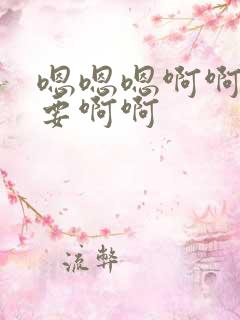 嗯嗯嗯啊啊
要啊啊
流弊